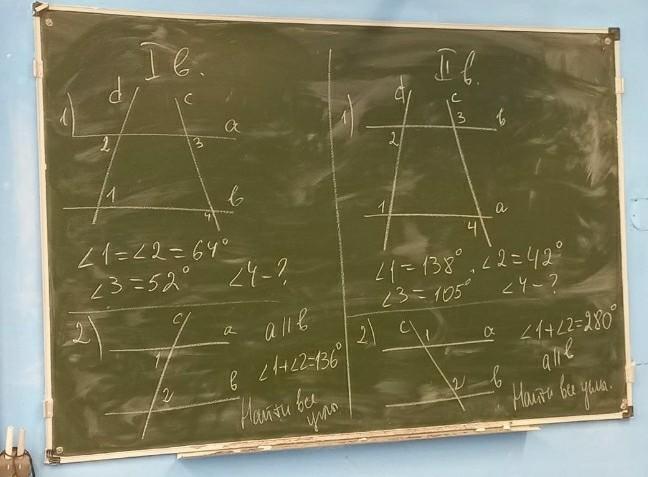 I в.
1)
d
c
a
2
3
1
в
4
∠1=∠2=64°
∠3=52° ∠4-?
2)
c
a
a||в
1
∠1+∠2=136°
2
в
Найти все
углы
II в.
1)
d
c
3
в
2
1
a
4
∠1=138°, ∠2=42°
∠3=105° ∠4-?
2)
c
1
a
∠1+∠2=280°
a||в
2
в
Найти все углы.